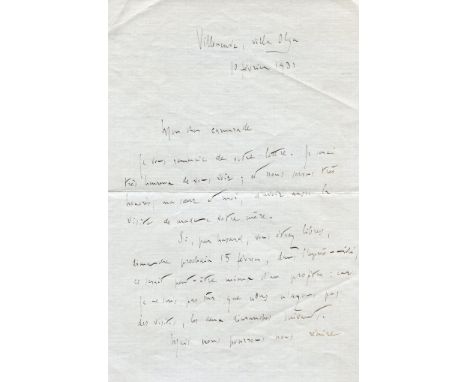 Villeneuve, villa Olga
10 février 1931
Mon cher camarade
Je vous remercie de votre lettre. Je serai
très heureux de vous voir; et nous serons très
honorés, ma sœur et moi, d'avoir aussi la
visite de madame votre mère.
Si, par hasard, vous étiez libres,
dimanche prochain 15 février, dans l'après-midi,
ce serait peut-être mieux d'en profiter: car
je ne suis pas sûr que nous n'ayons pas
des visites, les deux dimanches suivants.
Mais nous pourrons nous